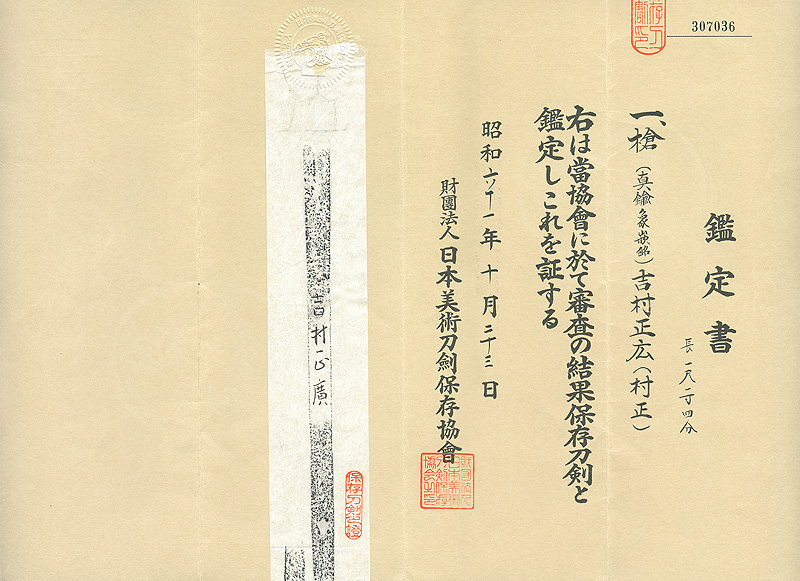 307036
鑑定書
長一尺二寸四分
一、槍(真鍮象嵌銘)吉村正広(村正)
右は當協會に於て審査の結果保存刀剣と
鑑定しこれを証する
昭和六十一年十月二十三日
財團法人日本美術刀劍保存協會
吉村正廣
保存刀剣之證